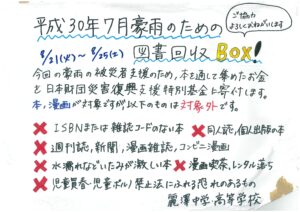 平成30年7月豪雨のための
ご協力
よろしくおねがいします
8/21(火)~8/25(土) 図書回収BOX!
今回の豪雨の被災者支援のため、本を通じて集めたお金
を日本財団災害復興支援特別基金に寄付します。
本、漫画が対象ですが以下のものは対象外です。
×ISBNまたは雑誌コードのない本 ×同人誌、個人出版の本
×週刊誌、新聞、漫画雑誌、コンビニ漫画
×水濡れなどいたみが激しい本 ×漫画喫茶、レンタル落ち
×児童買春・児童ポルノ禁止法にふれる恐れのあるもの
麗澤中学・高等学校